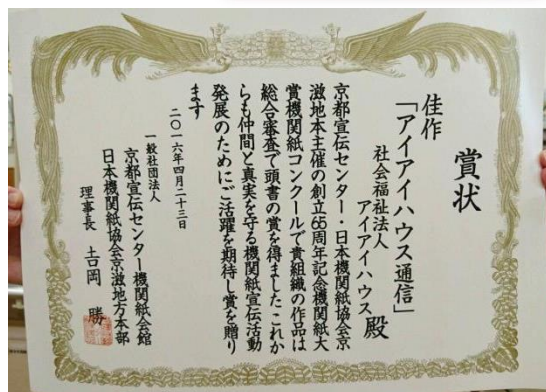 賞状
佳作
「アイアイハウス通信」
社会福祉法人
アイアイハウス殿
京都宣伝センター・日本機関紙協会京
滋地本主催の創立65周年記念機関紙大
賞機関紙コンクールで貴組織の作品は
総合審査で頭書の賞を得ましたこれか
らも仲間と真実を守る機関紙宣伝活動
発展のためにご活躍を期待し賞を贈り
ます
二〇一六年四月二十三日
一般社団法人
京都宣伝センター機関紙会館
日本機関紙協会京滋地方本部
理事長 吉岡 勝